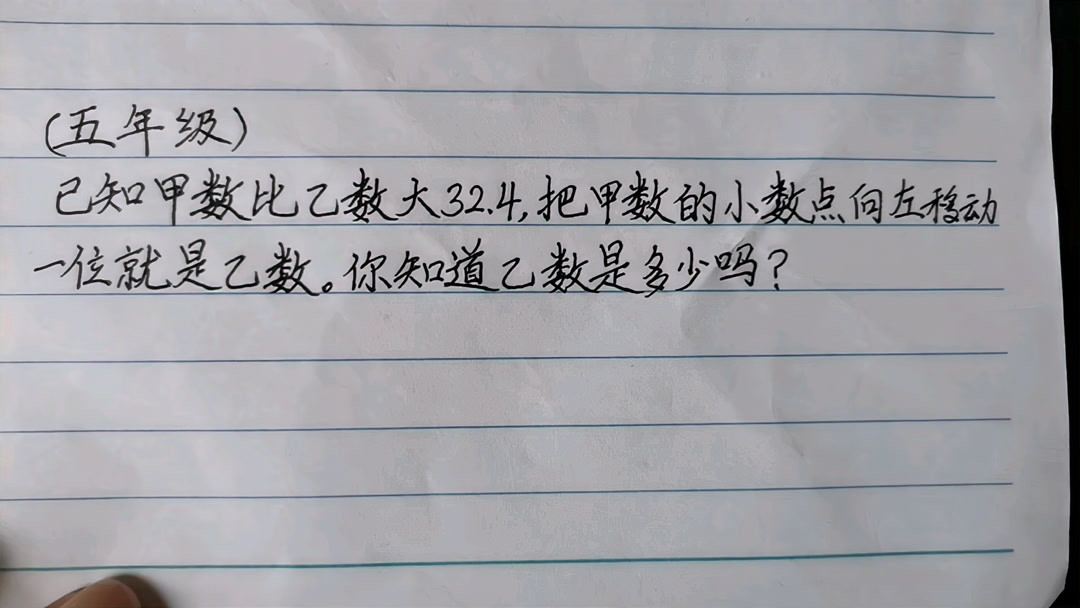 (五年级)
已知甲数比乙数大32.4,把甲数的小数点向左移动
一位就是乙数。你知道乙数是多少吗?